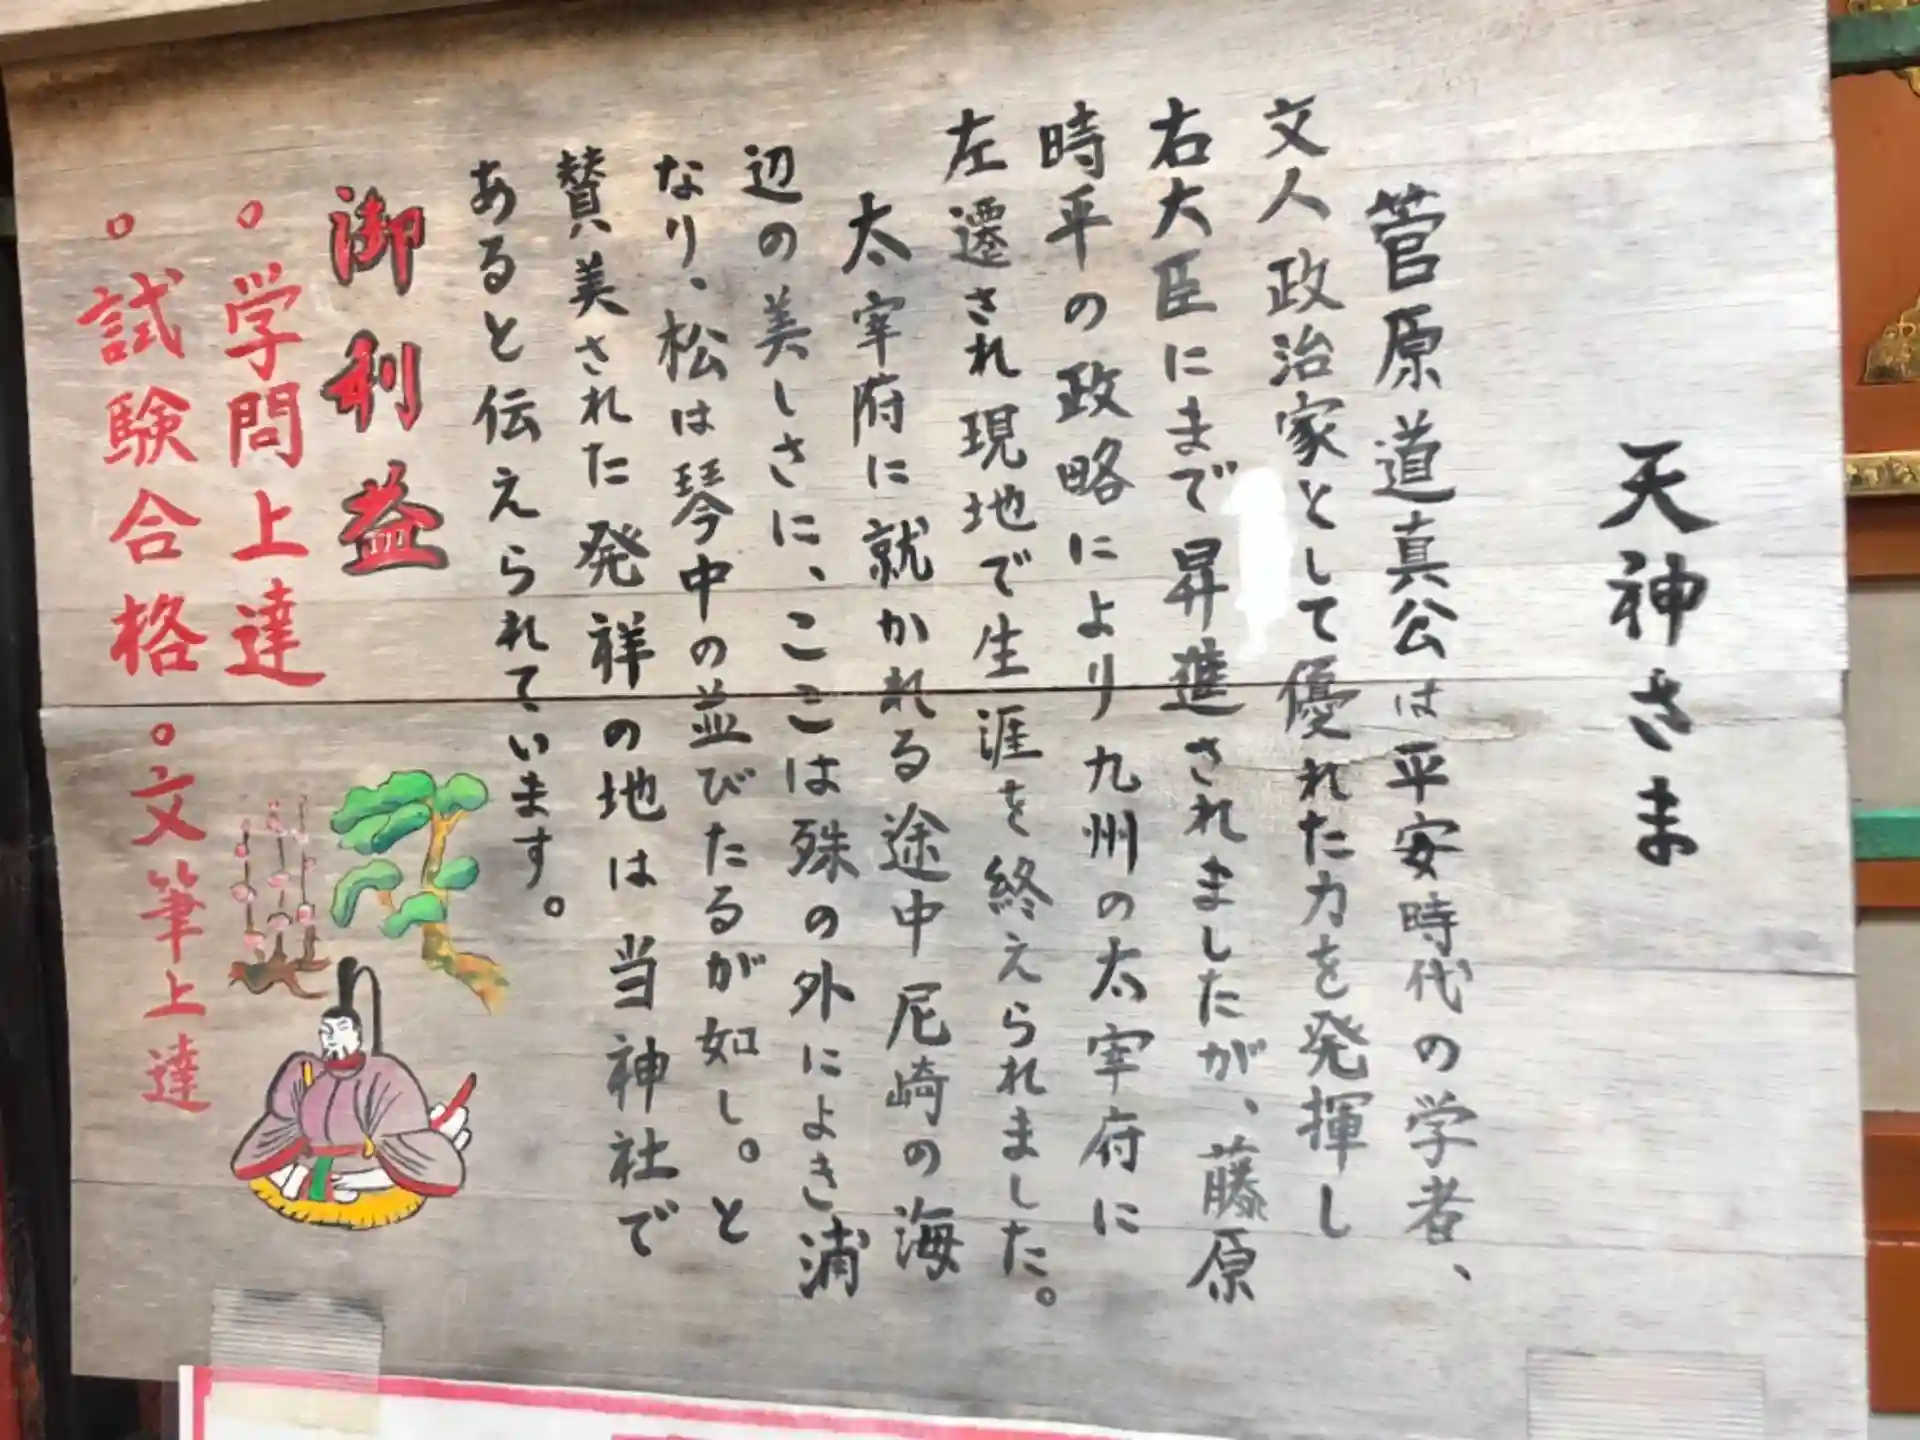 天神さま
菅原道真公は平安時代の学者、
文人政治家として優れた力を発揮し
右大臣にまで昇進されましたが、藤原
時平の政略により九州の太宰府に
左遷され現地で生涯を終えられました。
太宰府に就かれる途中尼崎の海
辺の美しさに、ここは殊の外によき浦
なり、松は琴中の並びたるが如し。と
賛美された発祥の地は当神社で
あると伝えられています。
御利益
。学問上達
。試験合格
。文筆上達